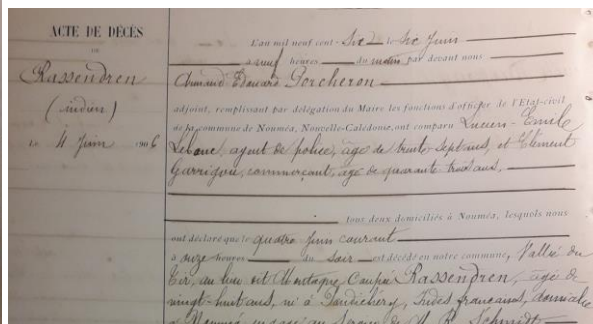 ACTE DE DÉCÈS
DE
Rassendren
(indien)
Le 4 Juin 1906
L'an mil neuf cent Six le Six Juin
à neuf heures du matin par devant nous
Armand Edouard Porcheron
adjoint, remplissant par délégation du Maire les fonctions d'officier de l'Etat-civil
de la commune de Nouméa, Nouvelle-Calédonie, ont comparu Lucien-Emile
Leblanc, agent de police, âgé de trente sept ans, et Clément
Garrigou, commerçant, âgé de quarante trois ans,
tous deux domiciliés à Nouméa, lesquels nous
ont déclaré que le quatre Juin courant
à onze heures du soir est décédé en notre commune, Vallée du
Tir, au lieu dit Montagne Coupée Rassendren, âgé de
vingt-huit ans, né à Pondichéry, Indes françaises, domicilié
à Nouméa, engagé au Service de Schmidt